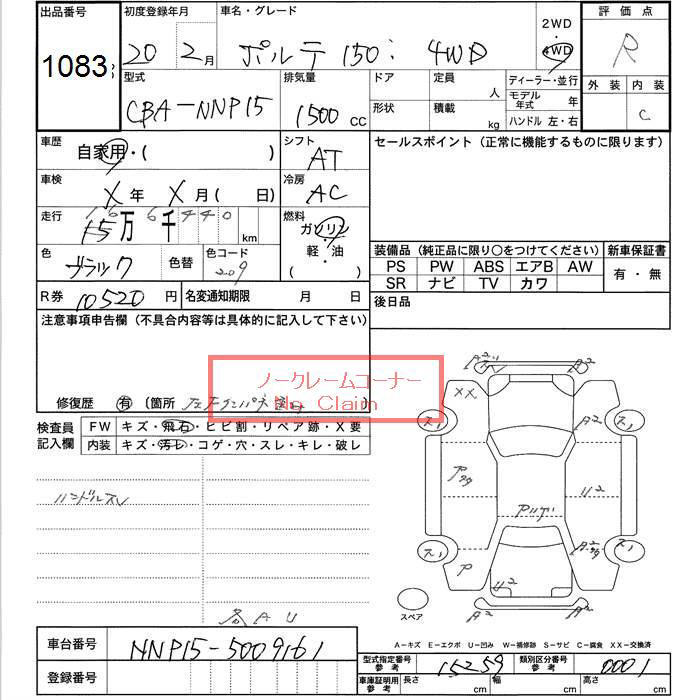 出品番号 初度登録年月 車名・グレード 2WD・4WD 評価点
1083 20年 2月 ポルテ 150i 4WD R
型式 排気量 ドア 定員 人 ディーラー・並行 外装 内装
CBA-NNP15 1500 CC 形状 積載 kg モデル年式 年 C
ハンドル 左・右
車歴 自家用・( ) シフト AT セールスポイント (正常に機能するものに限ります)
車検 X年 X月 ( 日) 冷房 AC
走行 15 16万 6千440 km 燃料 ガソリン・軽・油 ( )
色 ブラック 色替 色コード 209
装備品 (純正品に限り○をつけてください) 新車保証書
PS PW ABS エアB AW 有・無
SR ナビ TV カワ
R券 10520円 名変通知期限 月 日 後日品
注意事項申告欄 (不具合内容等は具体的に記入して下さい)
ノークレームコーナー
No Claim
修復歴 有 〔箇所
検査員記入欄 FW キズ・飛石・ヒビ割・リペア跡・X要
内装 キズ・汚レ・コゲ・穴・スレ・キレ・破レ
ハンドルスレ
各AU
A2 A2
XX A2
スリ スリ
U2
スリ スリ
P U2
A2 A2
スペア
A-キズ E-エクボ U-凹み W-補修跡 S-サビ C-腐食 XX-交換済
車台番号 NNP15-5009161
型式指定番号 参考 15259 類別区分番号 参考 0001
登録番号
車庫証明用 参考 長さ cm 幅 cm 高さ cm